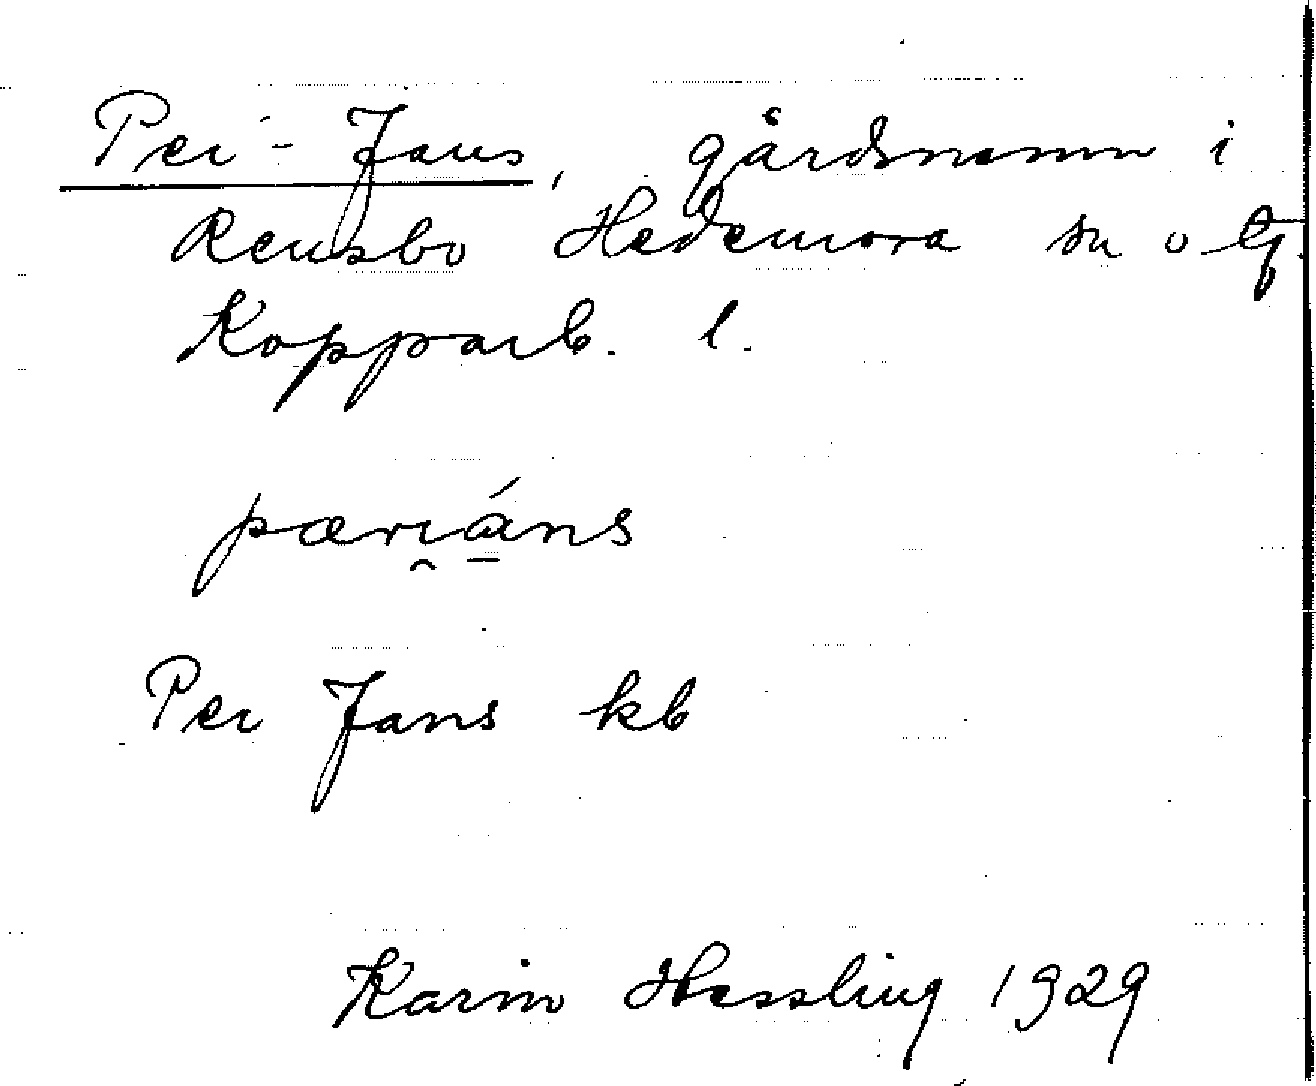 Per-Jans, gårdsnamn i
Rensbo Hedemora sn o tg.
Kopparb. l.
pærı̯á̠ns
Per Jans kb
Karin Hessling 1929